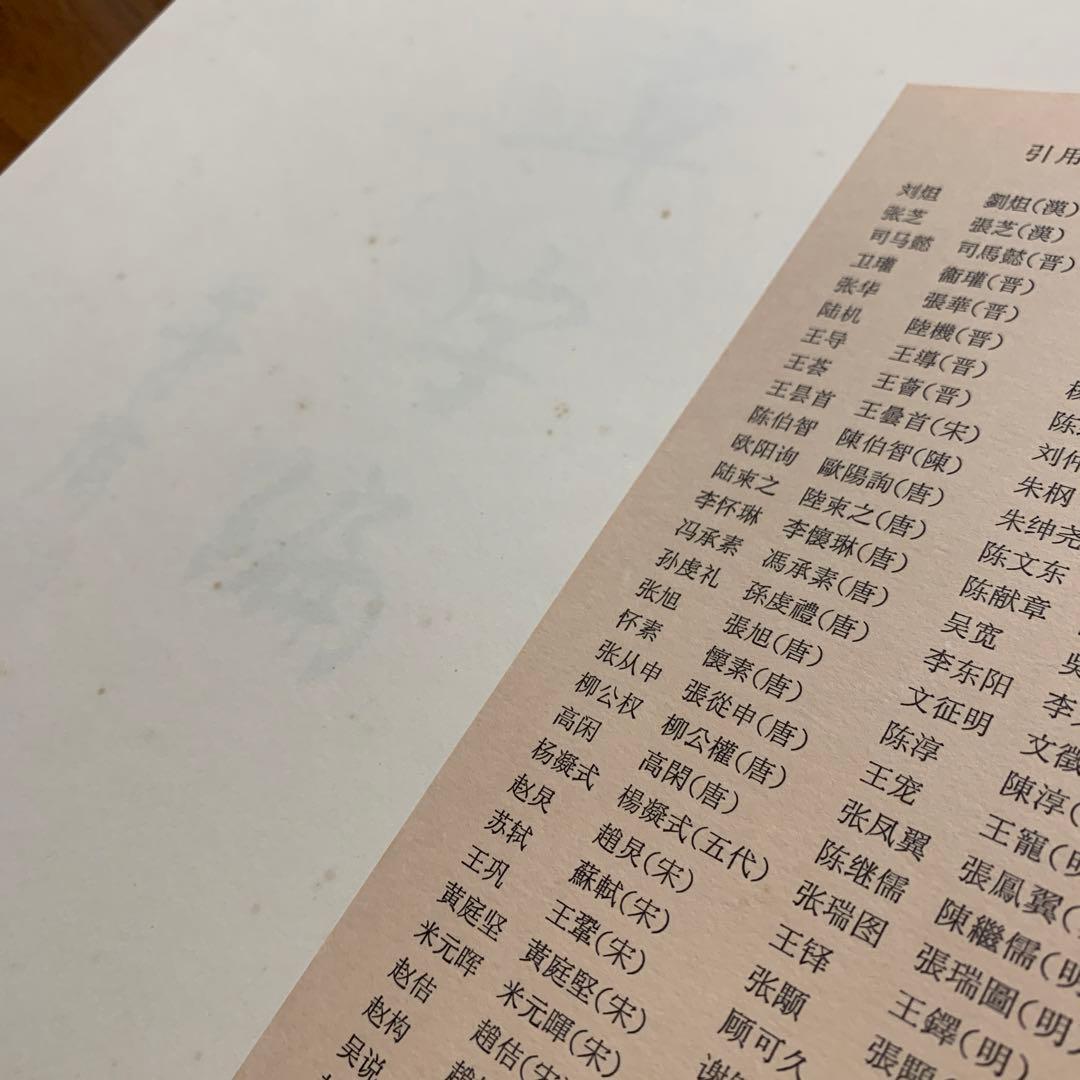 引用
刘炟 劉炟(漢)
张芝 張芝(漢)
司马懿 司馬懿(晋)
卫瓘 衞瓘(晋)
张华 張華(晋)
陆机 陸機(晋)
王导 王導(晋)
王荟 王薈(晋)
王昙首 王曇首(宋)
陈伯智 陳伯智(陳)
欧阳询 歐陽詢(唐)
陆柬之 陸柬之(唐)
李怀琳 李懷琳(唐)
冯承素 馮承素(唐)
孙虔礼 孫虔禮(唐)
张旭 張旭(唐)
怀素 懷素(唐)
张从申 張從申(唐)
柳公权 柳公權(唐)
高闲 高閑(唐)
杨凝式 楊凝式(五代)
赵炅 趙炅(宋)
苏轼 蘇軾(宋)
王巩 王鞏(宋)
黄庭坚 黄庭堅(宋)
米元晖 米元暉(宋)
赵佶 趙佶(宋)
赵构 趙
吴说
陈
刘仲
朱㭎
朱绅尧
陈文东
陈献章
吴宽 吳
李东阳 李
文征明 文徵
陈淳 陳淳(
王宠 王寵(明
张凤翼 張鳳翼(
陈继儒 陳繼儒(明
张瑞图 張瑞圖(明
王铎 王鐸(明)
张颙 張顒(
顾可久
谢